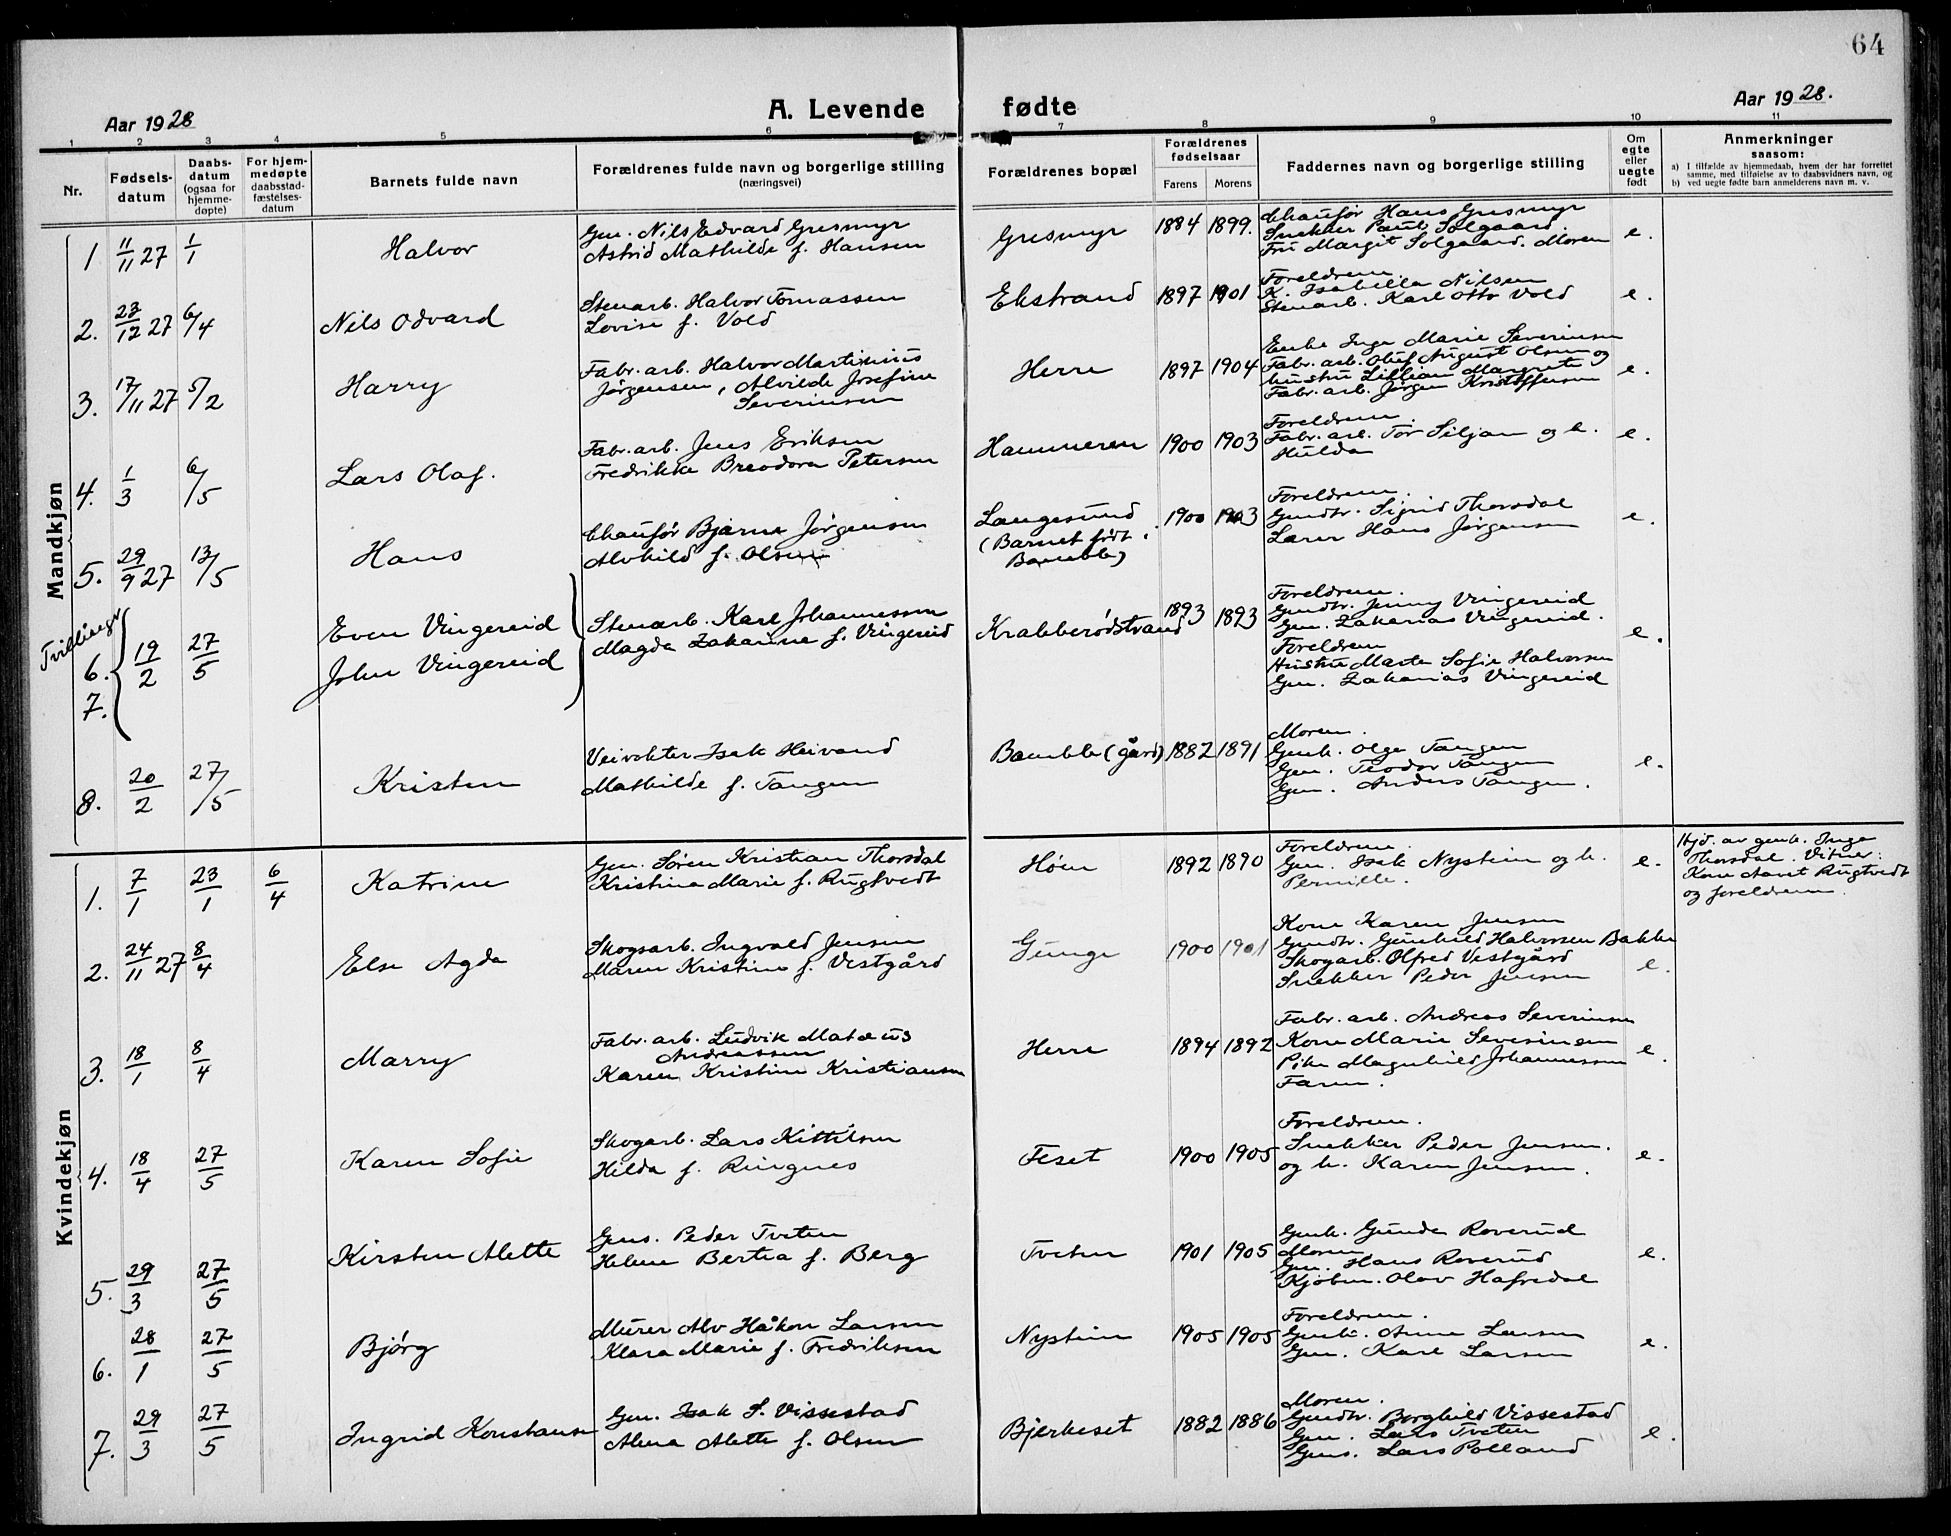 64
Aar 1928
A. Levende fødte
Aar 1928.
1 2 3 4 5 6 7 8 9 10 11
Nr.
Fødsels-
datum
Daabs-
datum
(ogsaa for
hjemme-
døpte)
For hjem-
medøpte
daabsstad-
fæstelses-
datum
Barnets fulde navn
Forældrenes fulde navn og borgerlige stilling
(næringsvei)
Forældrenes bopæl
Forældrenes
fødselsaar
Farens Morens
Faddernes navn og borgerlige stilling
Om
egte
eller
uegte
født
Anmerkninger
saasom:
a) I tilfælde av hjemmedaab, hvem der har forrettet
samme, med tilføielse av to daabsvidners navn, og
b) ved uegte fødte barn anmelderens navn m. v.
Mandkjøn
1 11/11 27 1/1 Halvor
Gm. Nils Edvard Gresmyr
Astrid Mathilde f. Hansen
Gresmyr 1884 1899.
Chaufør Hans Gresmyr
Snekker Paul Solgaard.
Fru Margit Solgaard. Moren
e.
2. 23/12 27 6/4 Nils Odvard
Stenarb. Halvor Tomassen
Lovise f. Vold
Ekstrand 1897 1901
Foreldrene.
K. Isabella Nilsen
Stenarb. Karl Otto Vold
e.
3. 17/11 27 5/2 Harry
Fabr. arb. Halvor Martinius
Jørgensen, Alvilde Josefine
Severinsen
Herre 1897 1904
Enke Inga Marie Severinsen
Fabr. arb. Oluf August Olsen og
hustru Lillian Margrete
Fabr. arb. Jørgen Kristoffersen
e.
4. 1/3 6/5 Lars Olaf.
Fabr. arb. Jens Eriksen
Fredrikke Breodora Petersen
Hammeren 1900 1903
Foreldrene.
Fabr. arb. Tor Siljan og h.
Hulda
e.
5. 29/9 27 13/5 Hans
Chaufør Bjarne Jørgensen
Alvhild f. Olsen
Langesund
(Barnet født i
Bamble)
1900 1903
Foreldrene.
Gmdtr. Sigrid Thorsdal
Lærer Hans Jørgensen
e.
Tvillinger
6.
7.
19/2 27/5
Even Vingereid
John Vingereid
Stenarb. Karl Johannessen
Magda Zakarine f. Vingereid
Krabberødstrand 1893 1893
Foreldrene.
Gmdtr. Jenny Vingereid
Gm. Zakarias Vingereid.
Foreldrene
Hustru Marte Sofie Halvorsen
Gm. Zakarias Vingereid
e.
8. 20/2 27/5 Kristen
Veivokter Isak Heivand
Mathilde f. Tangen
Bamble (gård) 1882 1891
Moren.
Gmk. Olga Tangen
Gm. Teodor Tangen
Gm. Anders Tangen.
e.
Kvindekjøn
1. 7/1 23/1 6/4 Katrine
Gm. Søren Kristian Thorsdal
Kristina Marie f. Rugtvedt
Høen 1892 1890
Foreldrene.
Gm. Isak Nystein og h.
Pernille.
e.
Hjd. av gmk. Inga
Thorsdal. Vitner:
Kone Aaret Rugtvedt
og foreldrene.
2. 24/11 27 8/4 Else Agda
Skogsarb. Ingvald Jensen
Maren Kristine f. Vestgård
Grunge 1900 1901
Kone Karen Jensen
Gmdtr. Gunhild Halvorsen Bakke
Skogarb. Olfred Vestgård
Snekker Peder Jensen
e.
3. 18/1 8/4 Marry
Fabr. arb. Ludvik Matæus
Andreassen
Karen Kristine Kristiansen
Herre 1894 1892
Fabr. arb. Andreas Severinsen
Kone Marie Severinsen
Pike Magnhild Johannessen
Faren.
e.
4. 18/4 27/5 Karen Sofie
Skogarb. Lars Kittilsen
Hilda f. Ringnes
Feset 1900 1905
Foreldrene.
Snekker Peder Jensen.
og h. Karen Jensen.
e.
5. 29/3 27/5 Kirsten Alette
Gms. Peder Tveten
Helene Bertea f. Berg
Tveten 1901 1905
Gmk. Gunda Roverud
Moren
Gm. Hans Roverud
Kjøbm. Olav Hafredal
e.
6. 28/1 27/5 Bjørg
Murer Alv Håkon Larsen
Klara Marie f. Fredriksen
Nystein 1905 1905
Foreldrene.
Gmk. Anne Larsen
Gm. Karl Larsen
e.
7. 29/3 27/5 Ingrid Konstanse
Gm. Isak S. Vissestad
Alma Alette f. Olsen
Bjerkeset 1882 1886
Moren.
Gmdtr. Borghild Vissestad
Gm. Lars Tveten
Gms. Lars Polland
e.